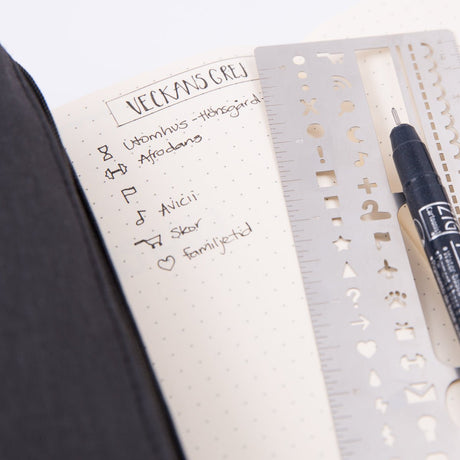 VECKANS GREJ
Utomhus - Hönsgård
Afrodans
Avicii
Skor
familjetid